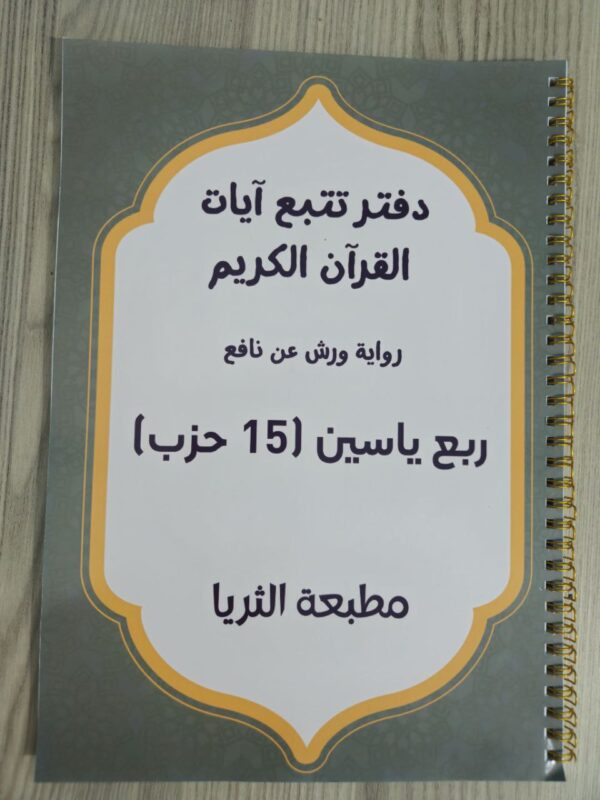 دفتر تتبع آيات
القرآن الكريم
رواية ورش عن نافع
ربع ياسين (15 حزب)
مطبعة الثريا